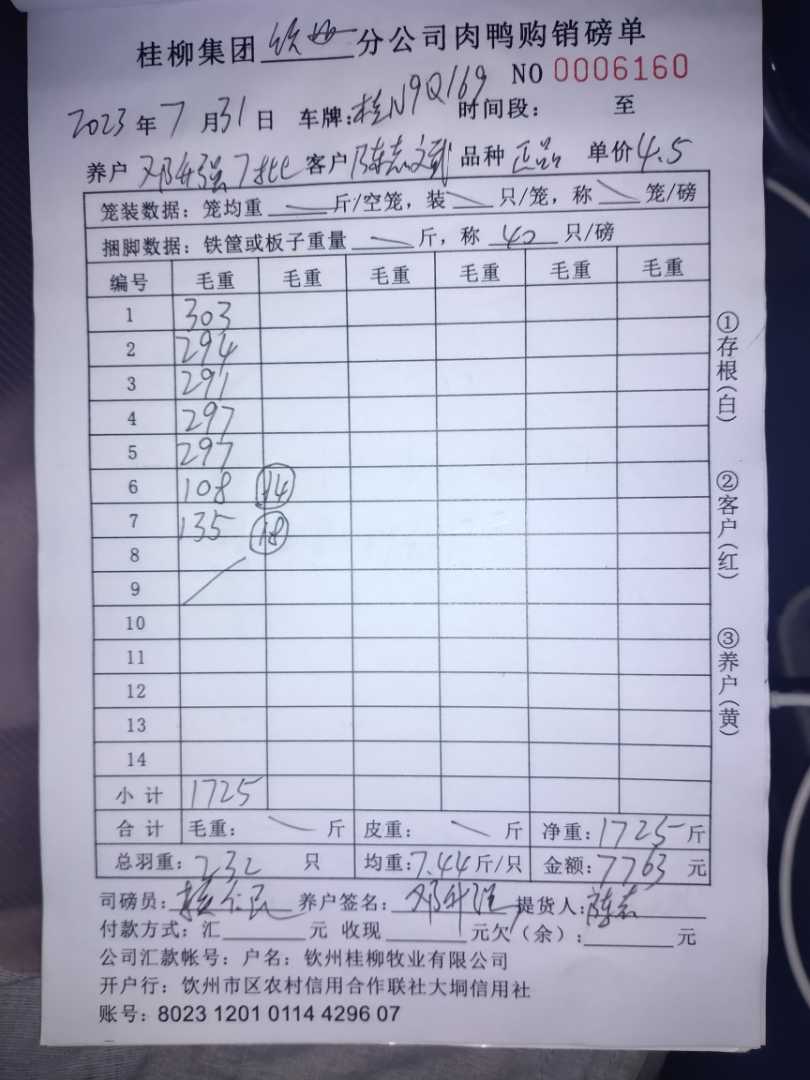 桂柳集团 钦州 分公司肉鸭购销磅单
NO 0006160
2023 年 7 月 31 日 车牌:桂N9Q169 时间段: 至
养户 邓升强 客户 陈志文 品种 正品 单价 4.5
笼装数据: 笼均重 斤/空笼, 装 只/笼, 称 笼/磅
捆脚数据: 铁筐或板子重量 斤, 称 40 只/磅
编号 毛重 毛重 毛重 毛重 毛重 毛重
1 303
2 294
3 291
4 297
5 297
6 108 14
7 135 18
8
9
10
11
12
13
14
小计 1725
合计 毛重: 斤 皮重: 斤 净重: 1725 斤
总羽重: 232 只 均重: 7.44 斤/只 金额: 7763 元
司磅员: 养户签名: 邓升强 提货人: 陈志
付款方式: 汇 元 收现 元欠(余): 元
公司汇款帐号: 户名: 钦州桂柳牧业有限公司
开户行: 饮州市区农村信用合作联社大垌信用社
账号: 8023 1201 0114 4296 07
①存根(白)
②客户(红)
③养户(黄)